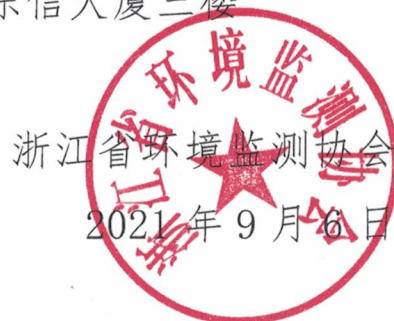 信大厦三楼
浙江省环境监测协会
2021年9月6日
浙江省环境监测协会